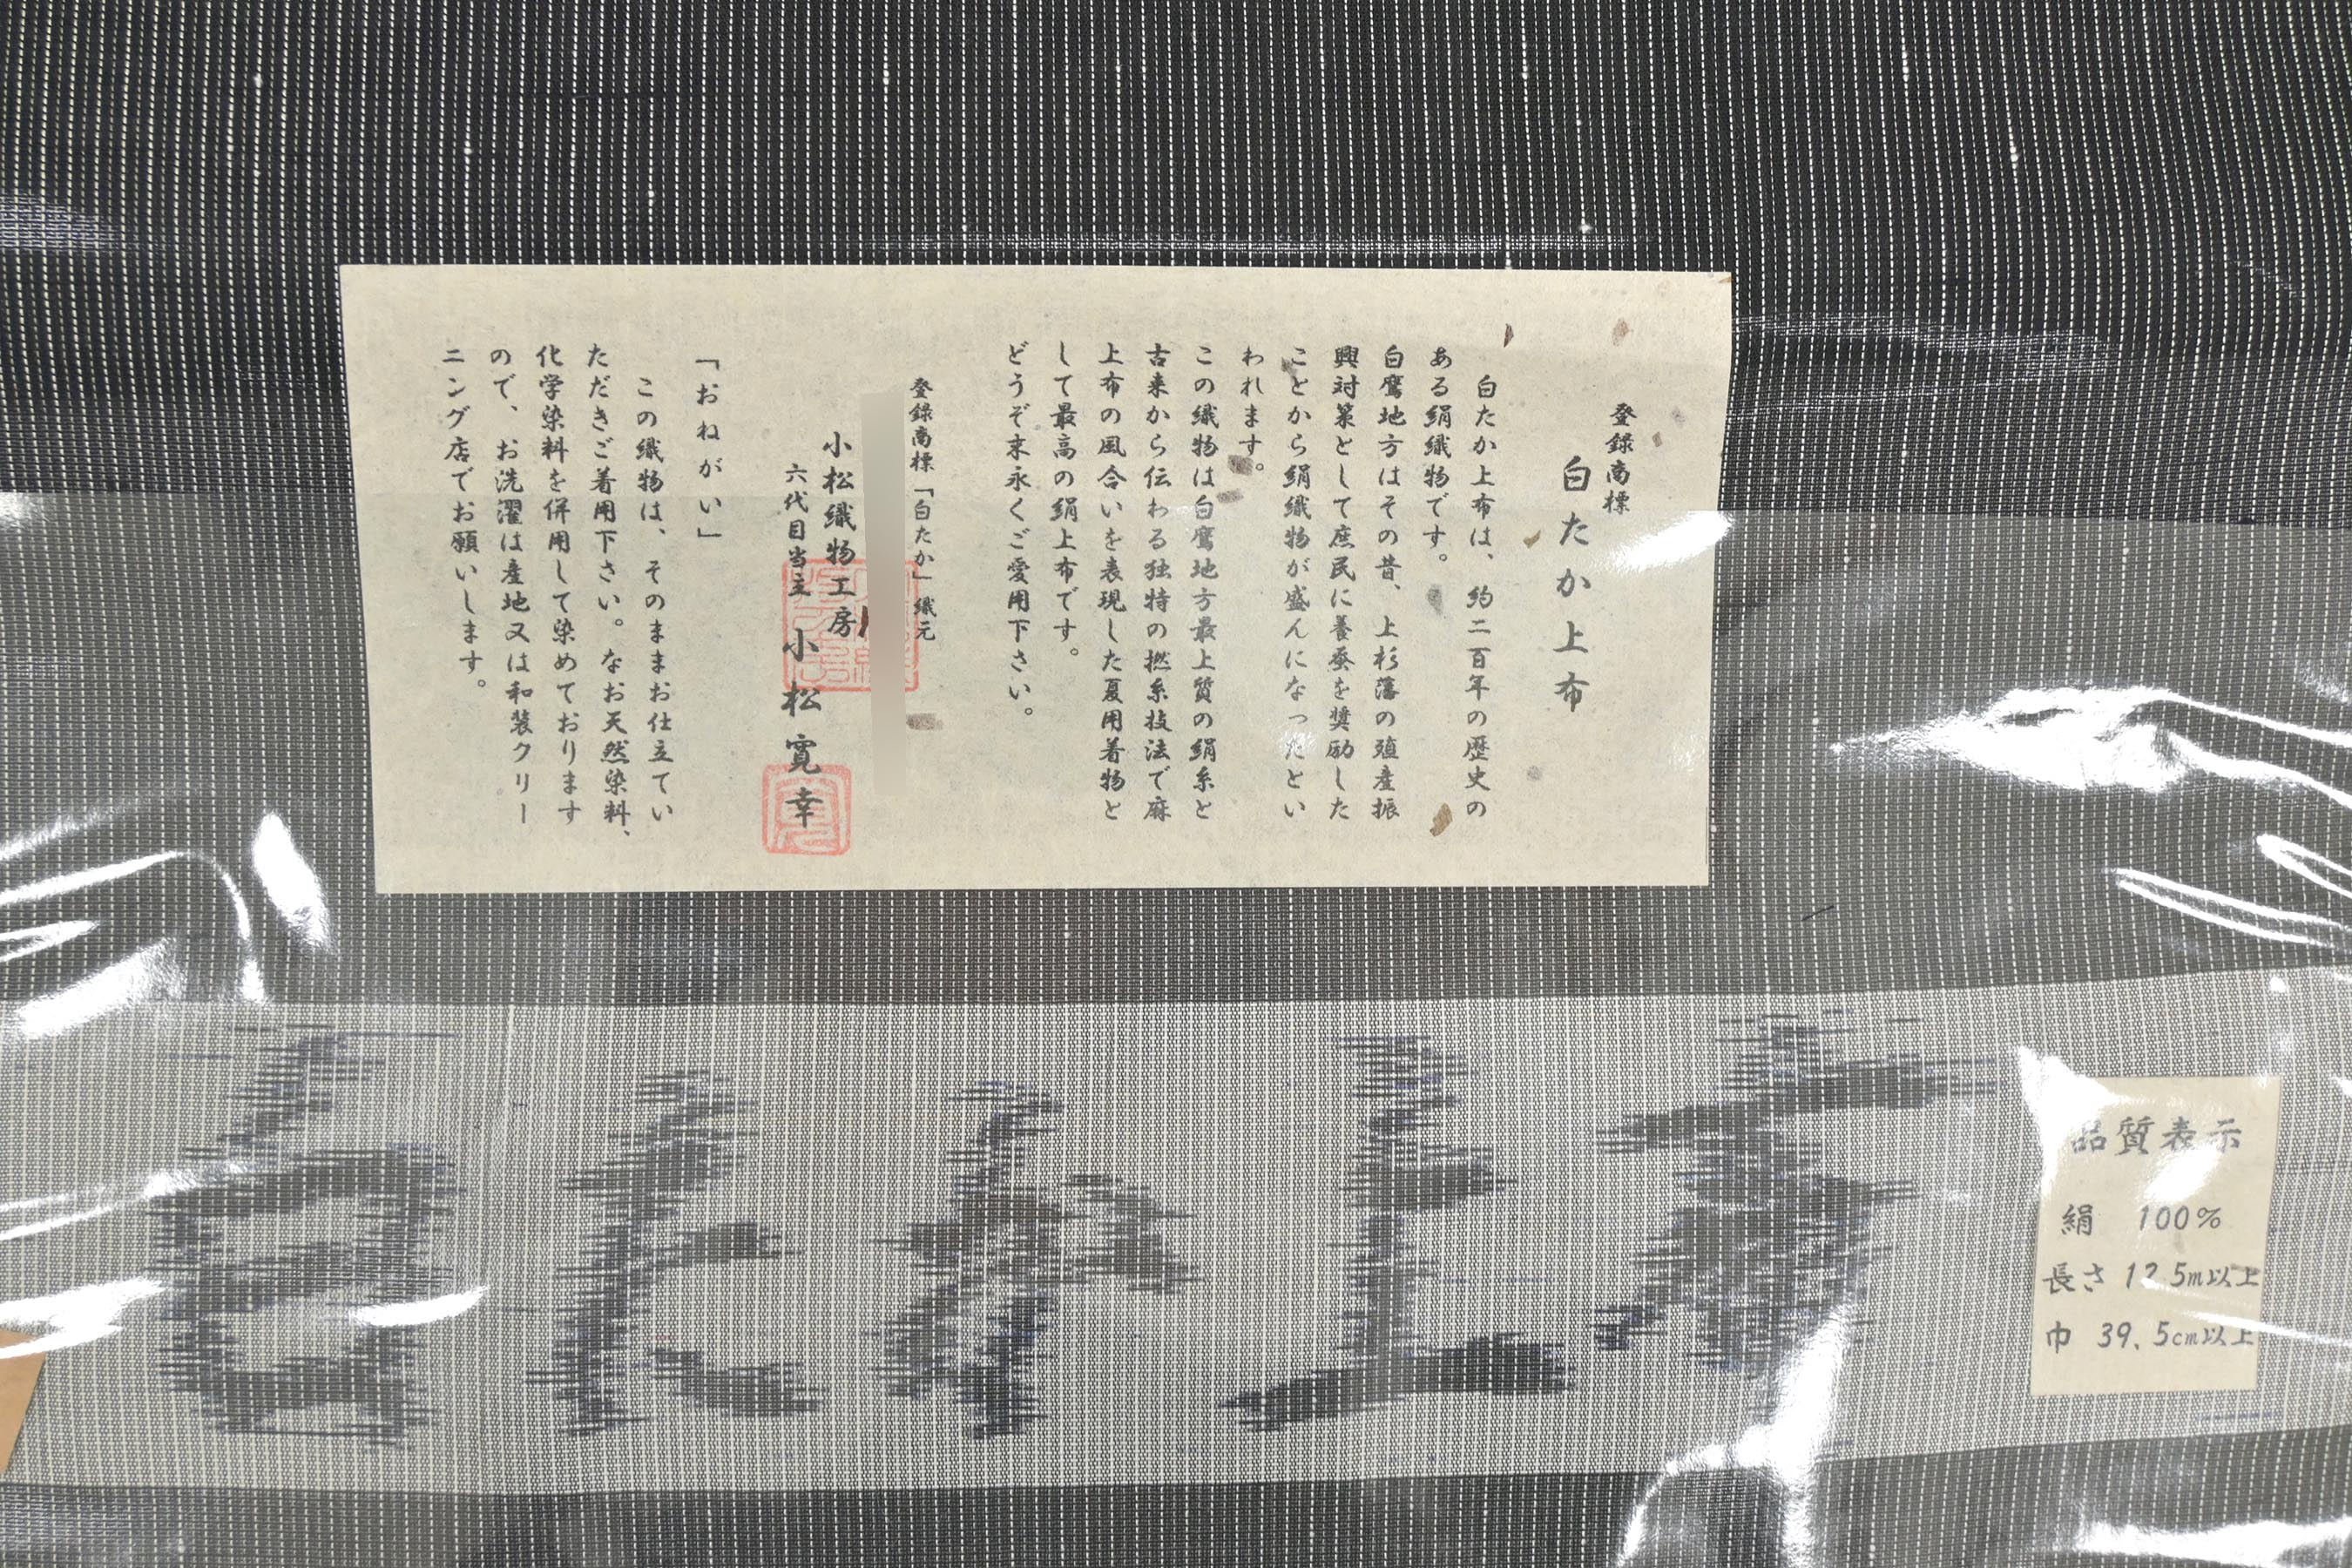 登録商標
白たか上布
白たか上布は、約二百年の歴史の
ある絹織物です。
白鷹地方はその昔、上杉藩の殖産振
興対策として庶民に養蚕を奨励した
ことから絹織物が盛んになったとい
われます。
この織物は白鷹地方最上質の絹糸と
古来から伝わる独特の撚糸技法で麻
上布の風合いを表現した夏用着物と
して最高の絹上布です。
どうぞ末永くご愛用下さい。
登録商標「白たか」織元
小松織物工房
六代目当主 小松寛幸
「おねがい」
この織物は、そのままお仕立てい
ただきご着用下さい。なお天然染料、
化学染料を併用して染めております
ので、お洗濯は産地又は和装クリー
ニング店でお願いします。
白たか上布
品質表示
絹 100%
長さ 12.5m以上
巾 39.5cm以上